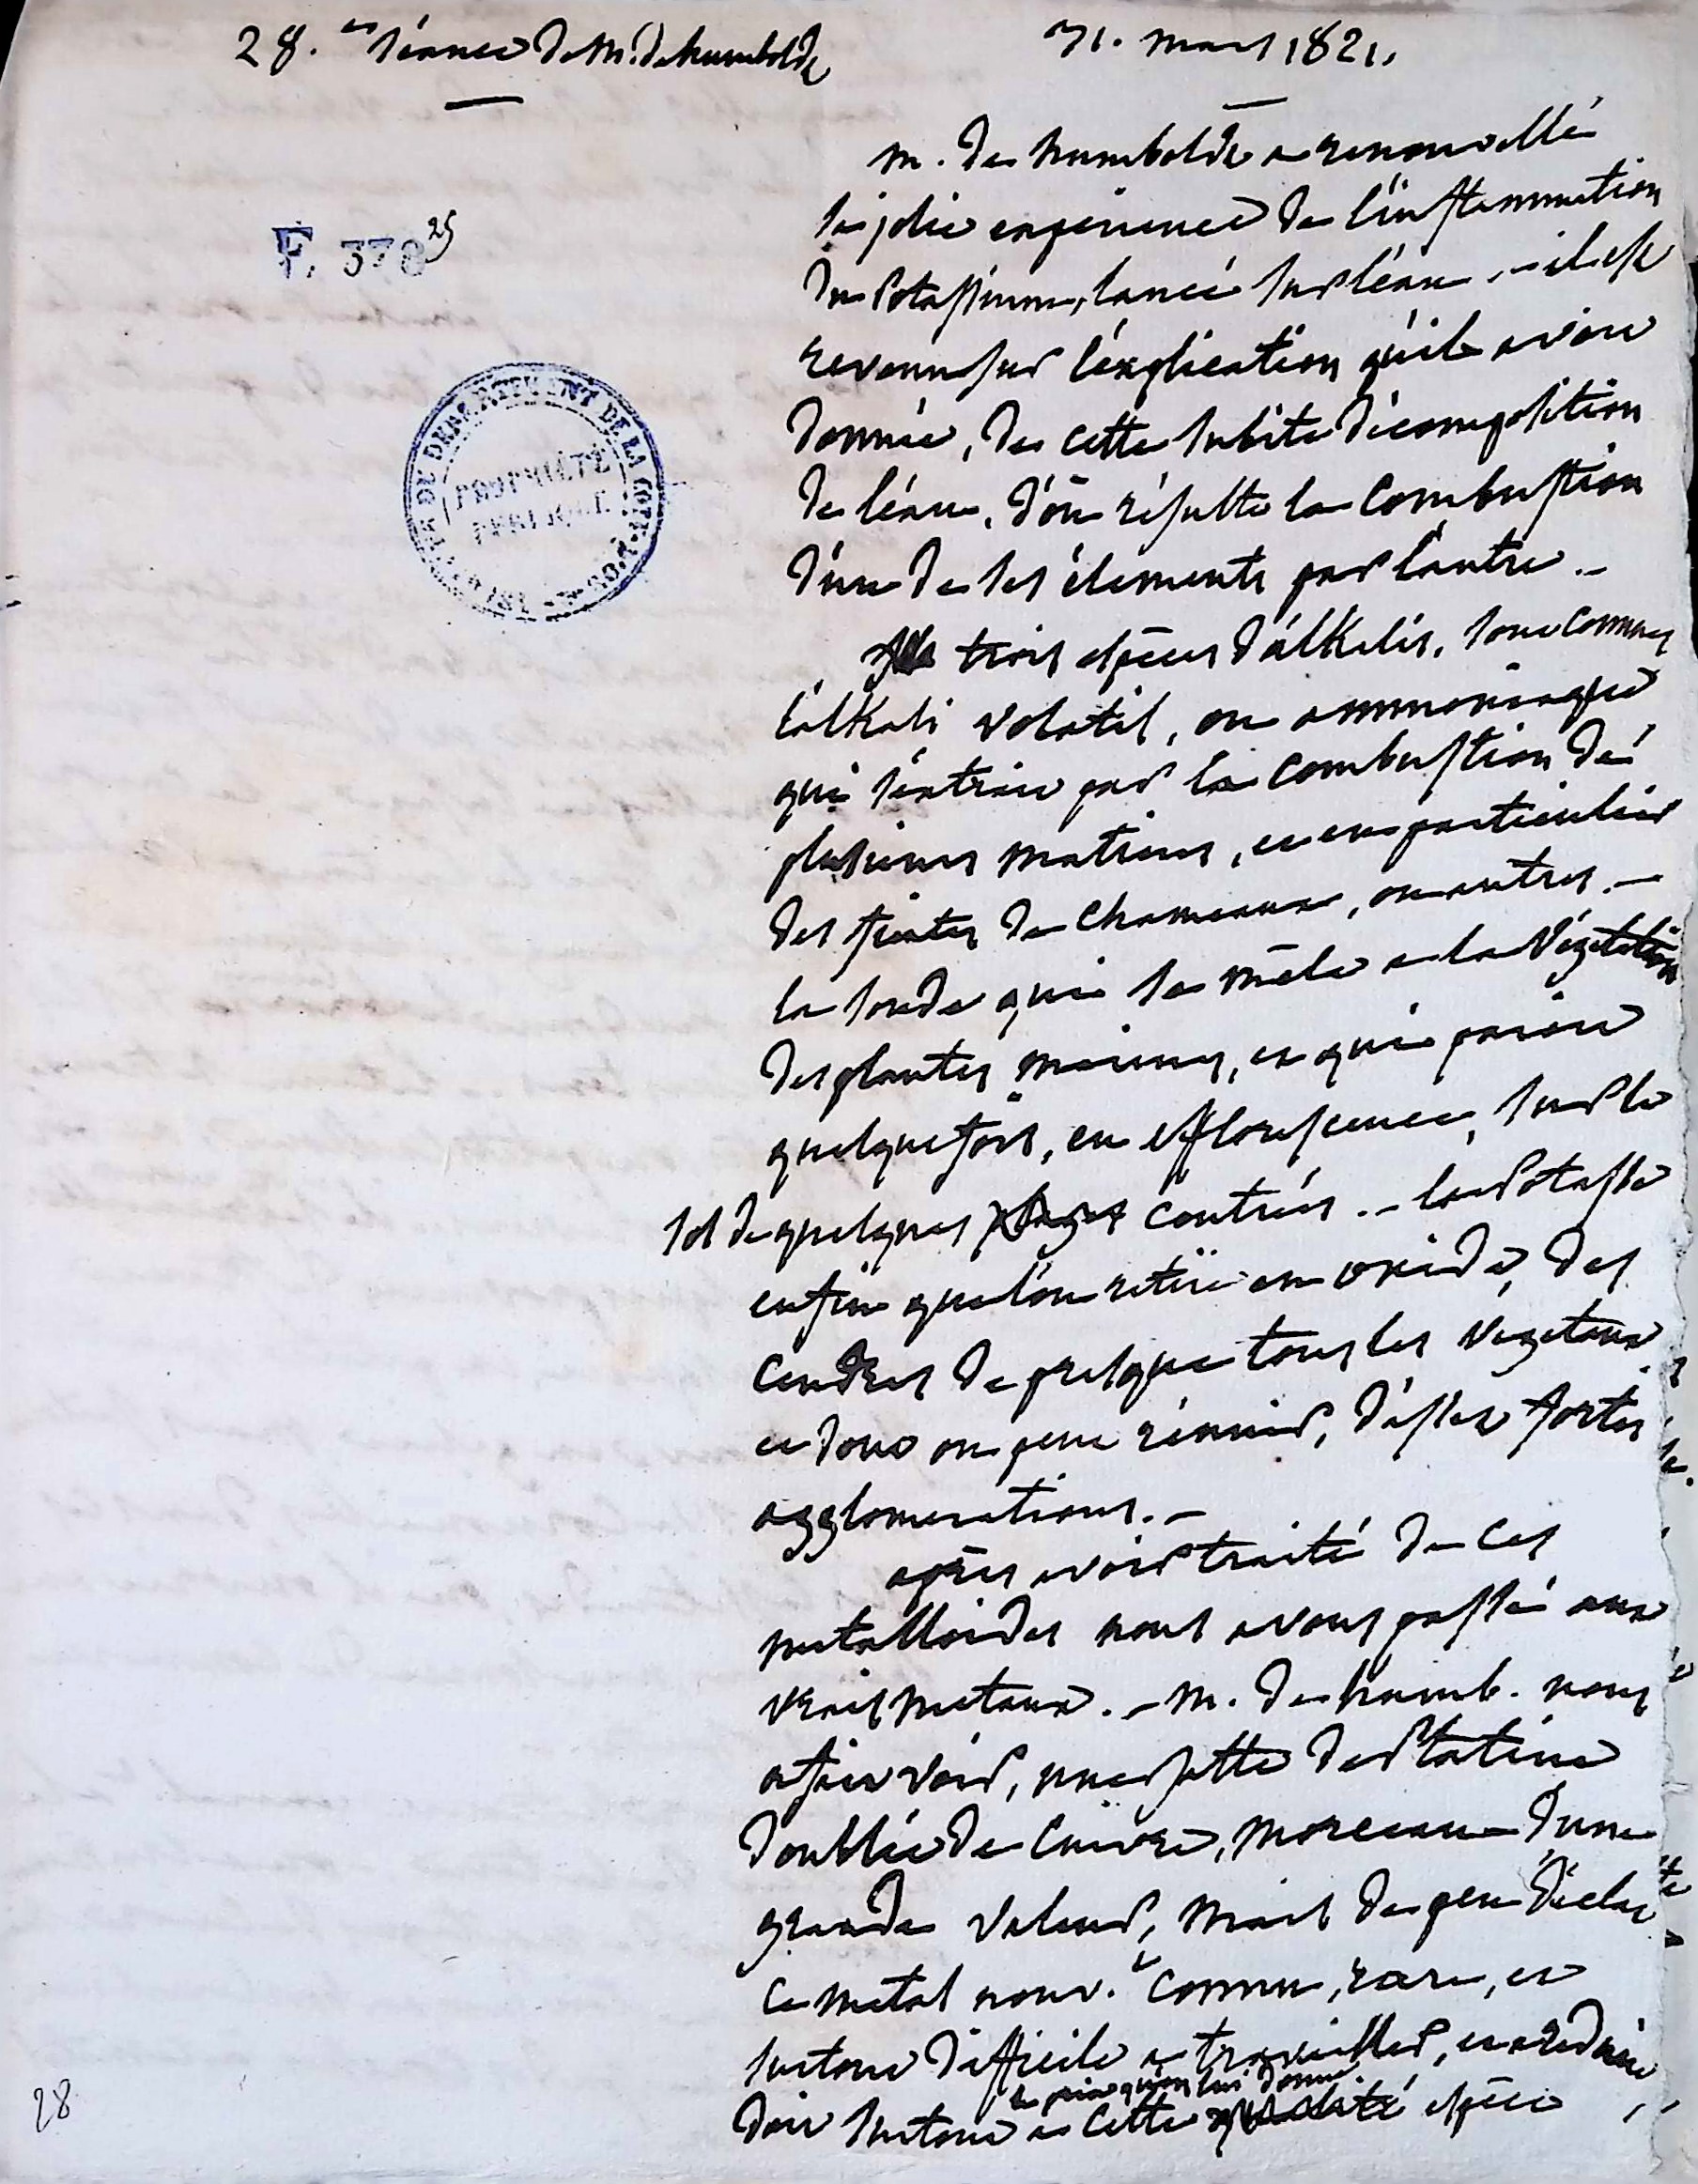 28.e séance de M. de humboldt
31. mars 1821.
F. 378 25
ARCHIVES DU DEPARTEMENT DE LA COTE-D'OR
PROPRIÉTÉ
PUBLIQUE
m. de humboldt a renouvellé
la jolie experience de l'inflammation
du Potassium, lancé sur l'éau. - il est
revenu sur l'éxplication qu'il avoit
donnée, de cette subite décomposition
de l'éau, d'òu résulte la combustion
d'un de ses élements par l'autre. -
trois espèces d'alkalis, sont connus
l'alkali volatil, ou ammoniaque
qui s'éxtrait par la combustion de
plusieurs matieres, et en particulier
des fientes de chameaux, ou autres. -
la soude qui se mêle a la végétation
des plantes marines, et qui paroit
quelquefois, en efflorescence, sur le
sol de quelques contrées. - la Potasse
enfin que l'on retire en oxide, des
cendres de presque tous les vegetaux
et dont on peut réunir, d'assez fortes
agglomerations. -
après avoir traité de ces
metalloides nous avons passé aux
vrais metaux. - M. de humb. nous
a fait voir, une de Platine
doublée de cuivre, morceau d'une
grande valeur, mais de peu d'éclat
ce metal nouv.t connu, rare, et
surtout difficile a travailler, et a reduire
le prix qu'on lui donne.
doit surtout a cette espèce
28